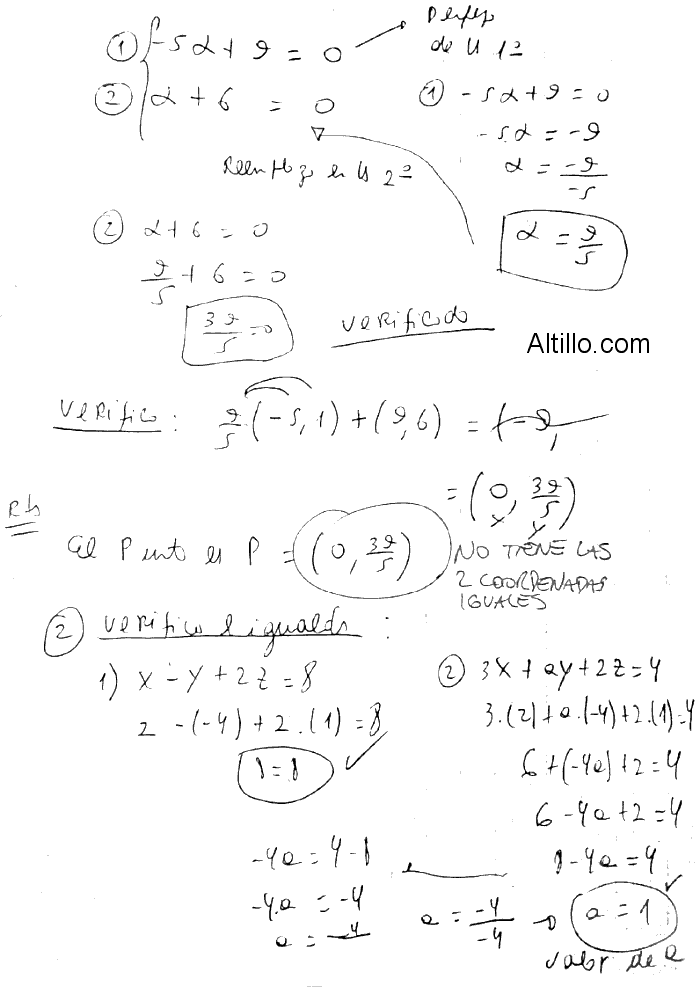 ① -5α + 9 = 0 → Despejo de la 1ª
② α + 6 = 0
Reemplazo en la 2ª
① -5α + 9 = 0
-5.α = -9
α = -9/-5
α = 9/5
② α + 6 = 0
9/5 + 6 = 0
39/5 = 0
Verificado
Altillo.com
Verifico : 9/5.(-5,1) + (9,6) = (-9,
= (0, 39/5)
x y
Rta
El Punto es P = (0, 39/5)
NO TIENE LAS
2 COORDENADAS
IGUALES
② Verifico la igualdad :
1) x - y + 2z = 8
2 - (-4) + 2.(1) = 8
8 = 8 ✓
② 3x + ay + 2z = 4
3.(2) + a.(-4) + 2.(1) = 4
6 + (-4a) + 2 = 4
6 - 4a + 2 = 4
8 - 4a = 4
-4a = 4 - 8
-4.a = -4
a = -4
a = -4/-4 → a = 1 ✓
valor de a